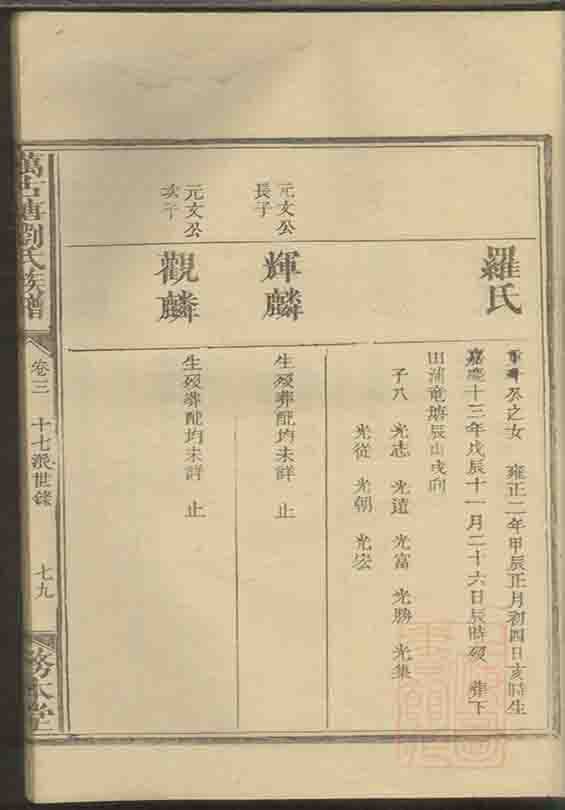 羅氏
公之女 雍正二年甲辰正月初四日亥時生
嘉慶十三年戊辰十一月二十六日辰時殁 葬下
田浦竜塘辰山戌向
子八 光志 光遠 光富 光勝 光集
光從 光朝 光宏
元文公
長子
輝麟
生殁葬配均未詳 止
元文公
次子
觀麟
生殁葬配均未詳 止
萬古塘劉氏族譜
卷三 十七派世錄
七九
務本堂